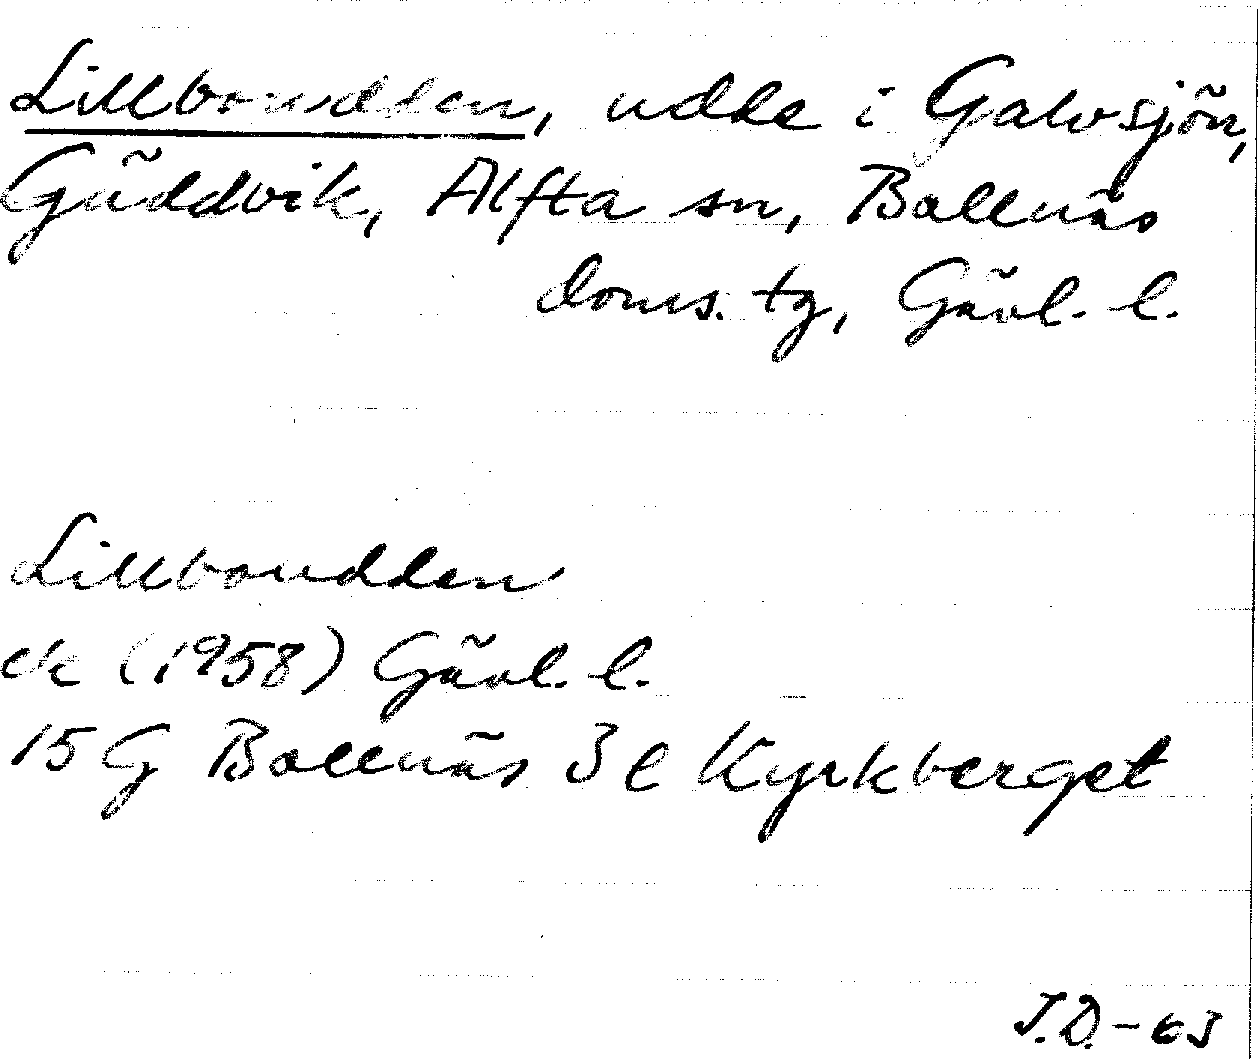 Lillboudden, udde i Galvsjön,
Gäddvik, Alfta sn, Bollnäs
doms. tg, Gävl. l.
Lillboudden
ek (1958) Gävl. l.
15 G Bollnäs 3 e Kyrkberget
J.D. - 63